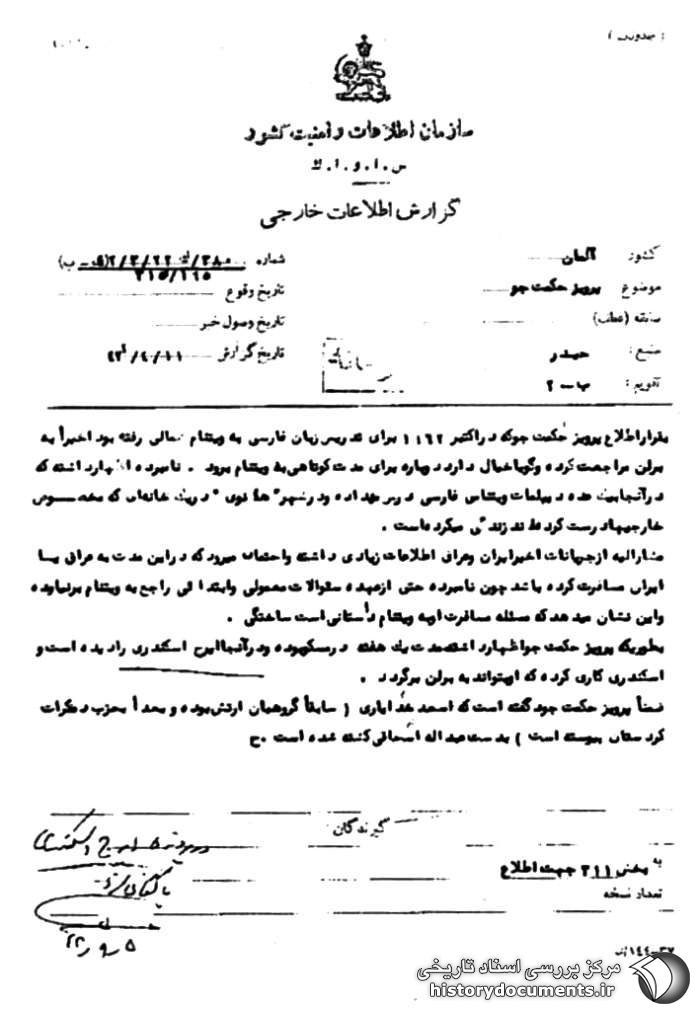 سازمان اطلاعات و امنیت کشور
س.ا.و.ا.ک
گزارش اطلاعات خارجی
کشور آلمان
شماره
موضوع پرویز حکمت جو
تاریخ وقوع
سابقه (عطف)
تاریخ وصول خبر
منبع: حیدر
تاریخ گزارش
تقویم: ب-۲
بقرار اطلاع پرویز حکمت جو که در اکتبر ۱۹۶۲ برای تدریس زبان فارسی به ویتنام شمالی رفته بود اخیراً به
برلن مراجعت کرده و گویا خیال دارد دوباره برای مدت کوتاهی به ویتنام برود. نامبرده اظهار داشته که
در آنجا بیک عده دیپلمات ویتنامی فارسی درس میداده و در شهر "هانوی" در یک خانه‌ای که مخصوص
خارجیها درست کرده‌اند زندگی میکرده است.
مشارالیه از جریانات اخیر ایران و عراق اطلاعات زیادی داشته و احتمال میرود که در این مدت به عراق یا
ایران مسافرت کرده باشد چون نامبرده حتی از عهده سئوالات معمولی وابتدائی راجع به ویتنام برنیامده
واین نشان میدهد که مسئله مسافرت او به ویتنام داستانی است ساختگی.
بطوریکه پرویز حکمت جو اظهار داشته مدت یک هفته در مسکو بوده و در آنجا ایرج اسکندری را دیده است و
اسکندری کاری کرده که او بتواند به برلن برگردد.
ضمناً پرویز حکمت جو گفته است که اسعد خدایاری (سابقاً گروهبان ارتش بوده و بعداً بحزب دمکرات
کردستان پیوسته است) بدست عبداله اسحاقی کشته شده است. ح
گیرندگان
به بخش ۳۱۱ جهت اطلاع
تعداد نسخه
در پرونده ایرج اسکندری
بایگانی شود
مرکز بررسی اسناد تاریخی
historydocuments.ir